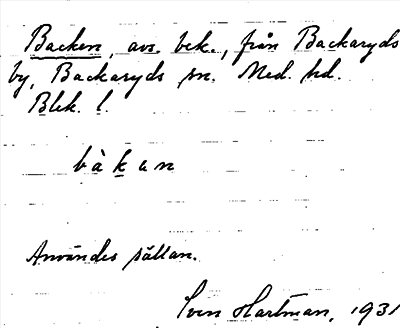 Backen, avs. bek., från Backaryds
by, Backaryds sn. Med. hd.
Blek. l.
bàkun
Användes sällan.
Sven Hartman, 1931